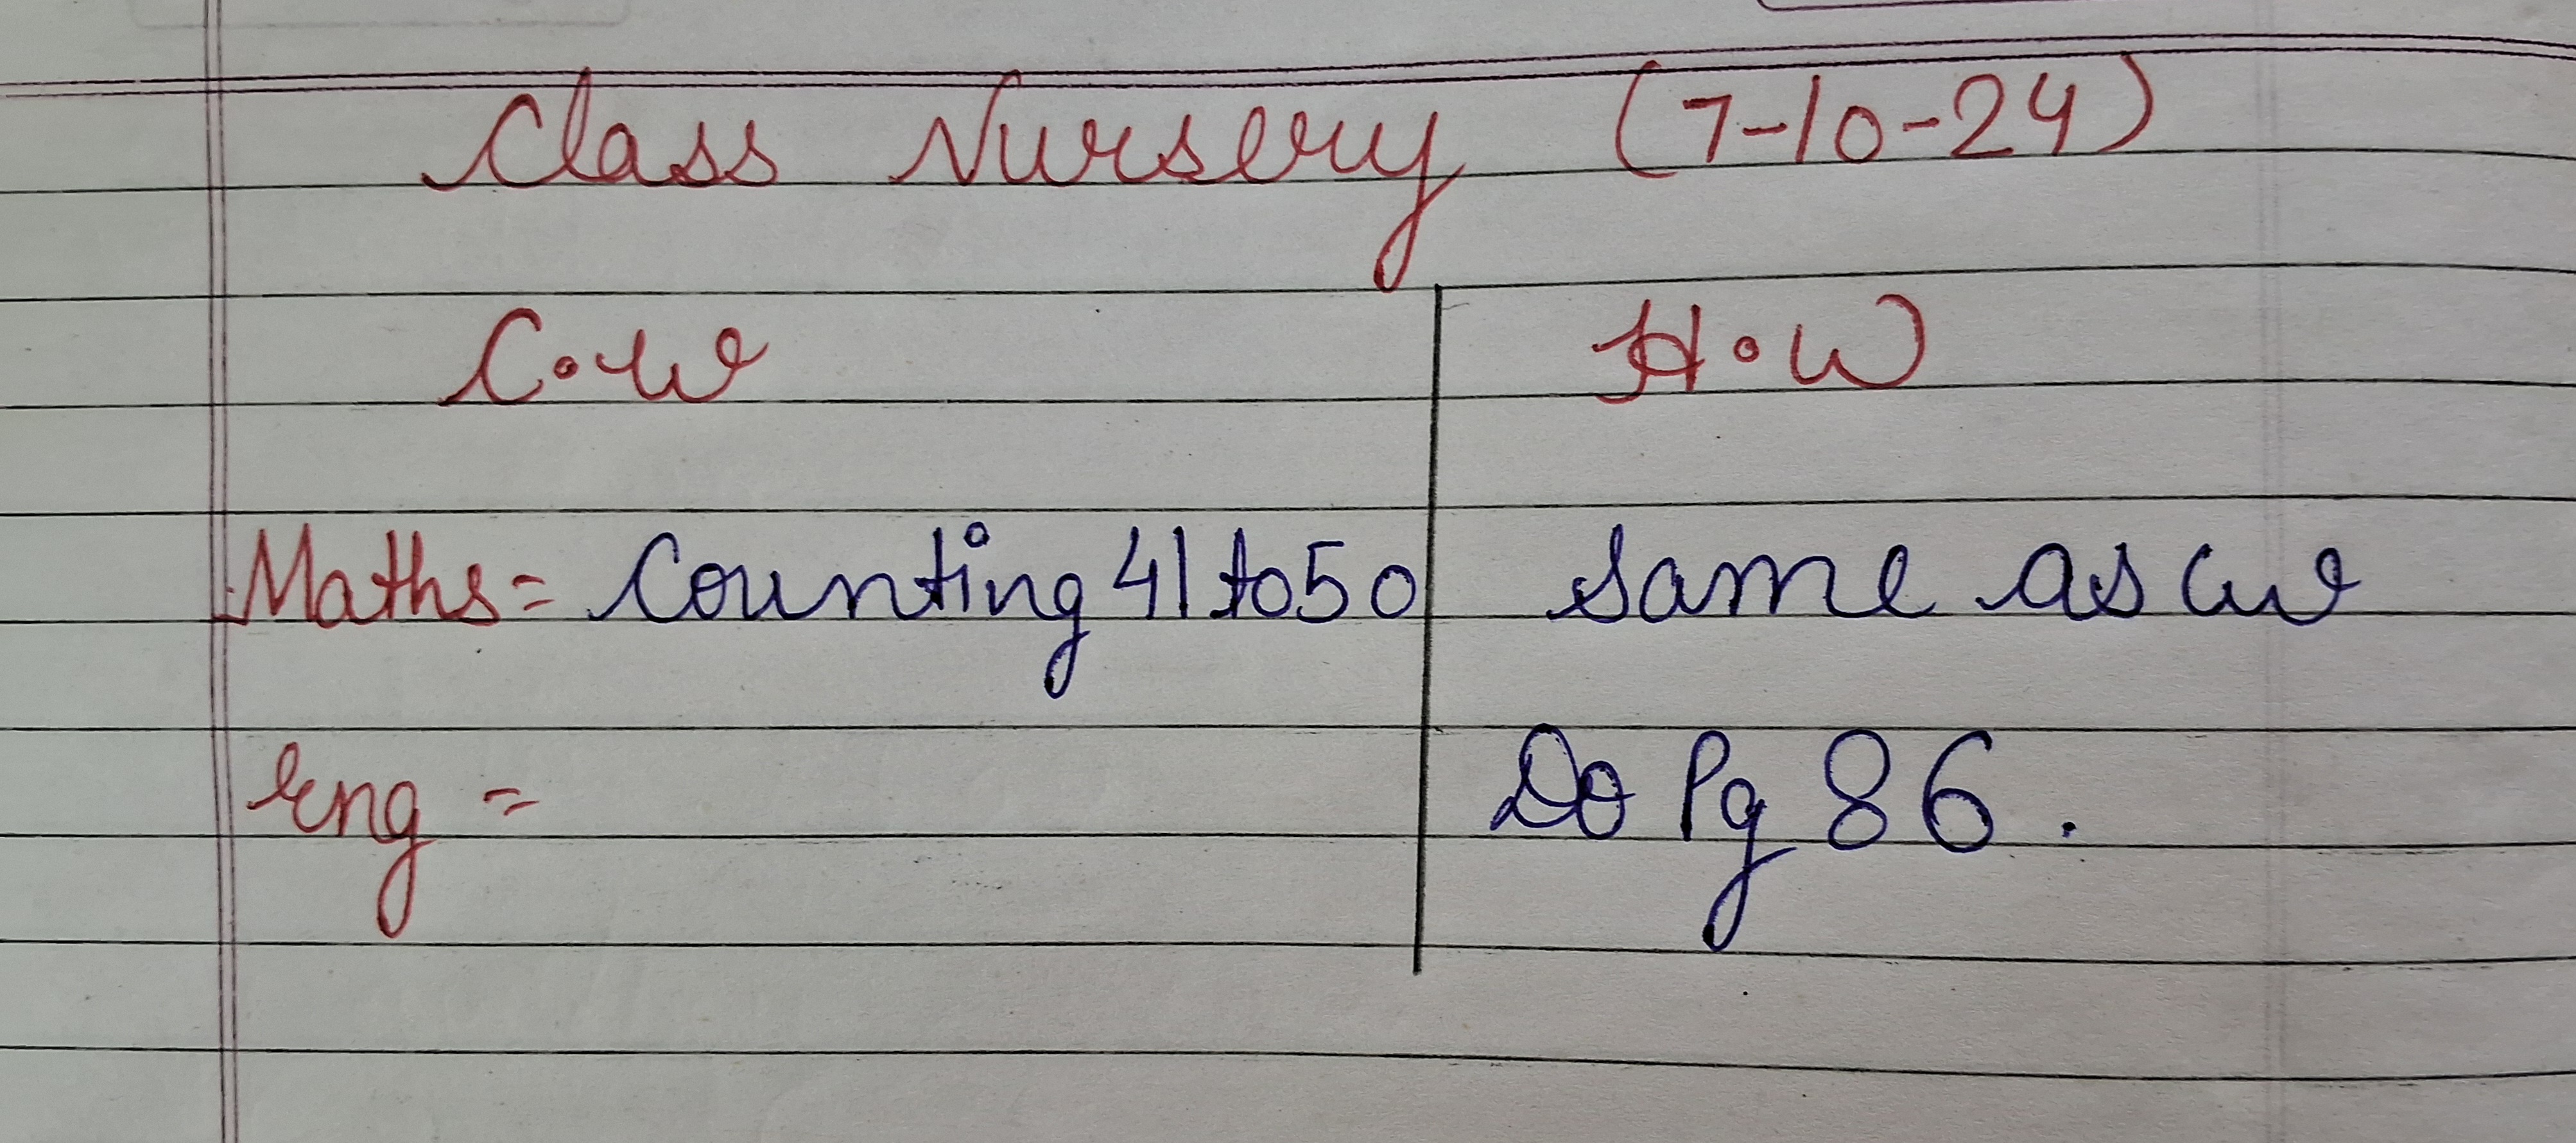 Class Nursery (7-10-24)
C.W H.W
Maths = Counting 41 to 50 Same as cw
Eng = Do Pg 86.